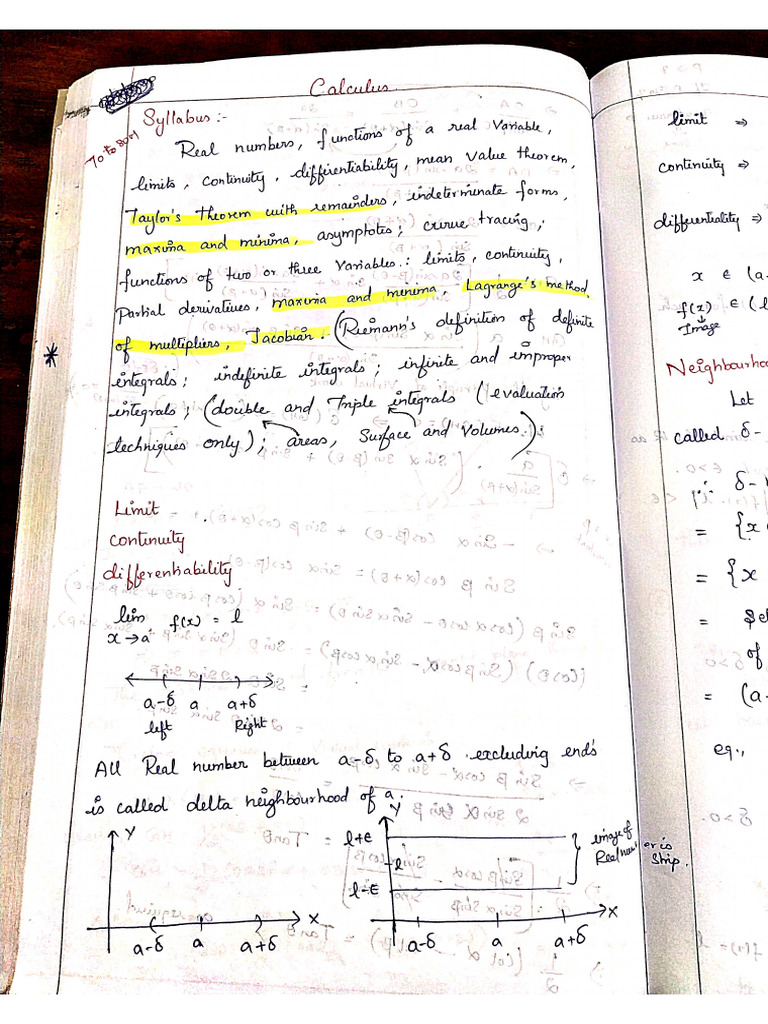 Calculus
Syllabus :-
70 to 80M
Real numbers, functions of a real Variable,
limits, continuity, differentiability, mean value theorem,
Taylor's theorem with remainders, indeterminate forms,
maxima and minima, asymptotes; curve tracing;
functions of two or three Variables: limits, continuity,
Partial derivatives, maxima and minima, Lagrange's method
of multipliers, Jacobian. (Riemann's definition of definite
integrals; indefinite integrals; infinite and improper
integrals; (double and Triple integrals (evaluation
techniques only); areas, Surface and Volumes.);
Limit
continuity
differentiability
lim f(x) = l
x→a
a-δ a a+δ
left Right
All Real number between a-δ to a+δ excluding ends
is called delta neighbourhood of a.
Y
X
a-δ a a+δ
Y
l+ε
l
l-ε
X
a-δ a a+δ
image of
Ship.
limit ⇒
continuity ⇒
differentiality ⇒
x ∈ (a-
f(x) ∈ (l
Image
Neighbourhoo
Let
called δ-
∴ δ-
= {x
= {x
= Set
of
= (a-
eg.,